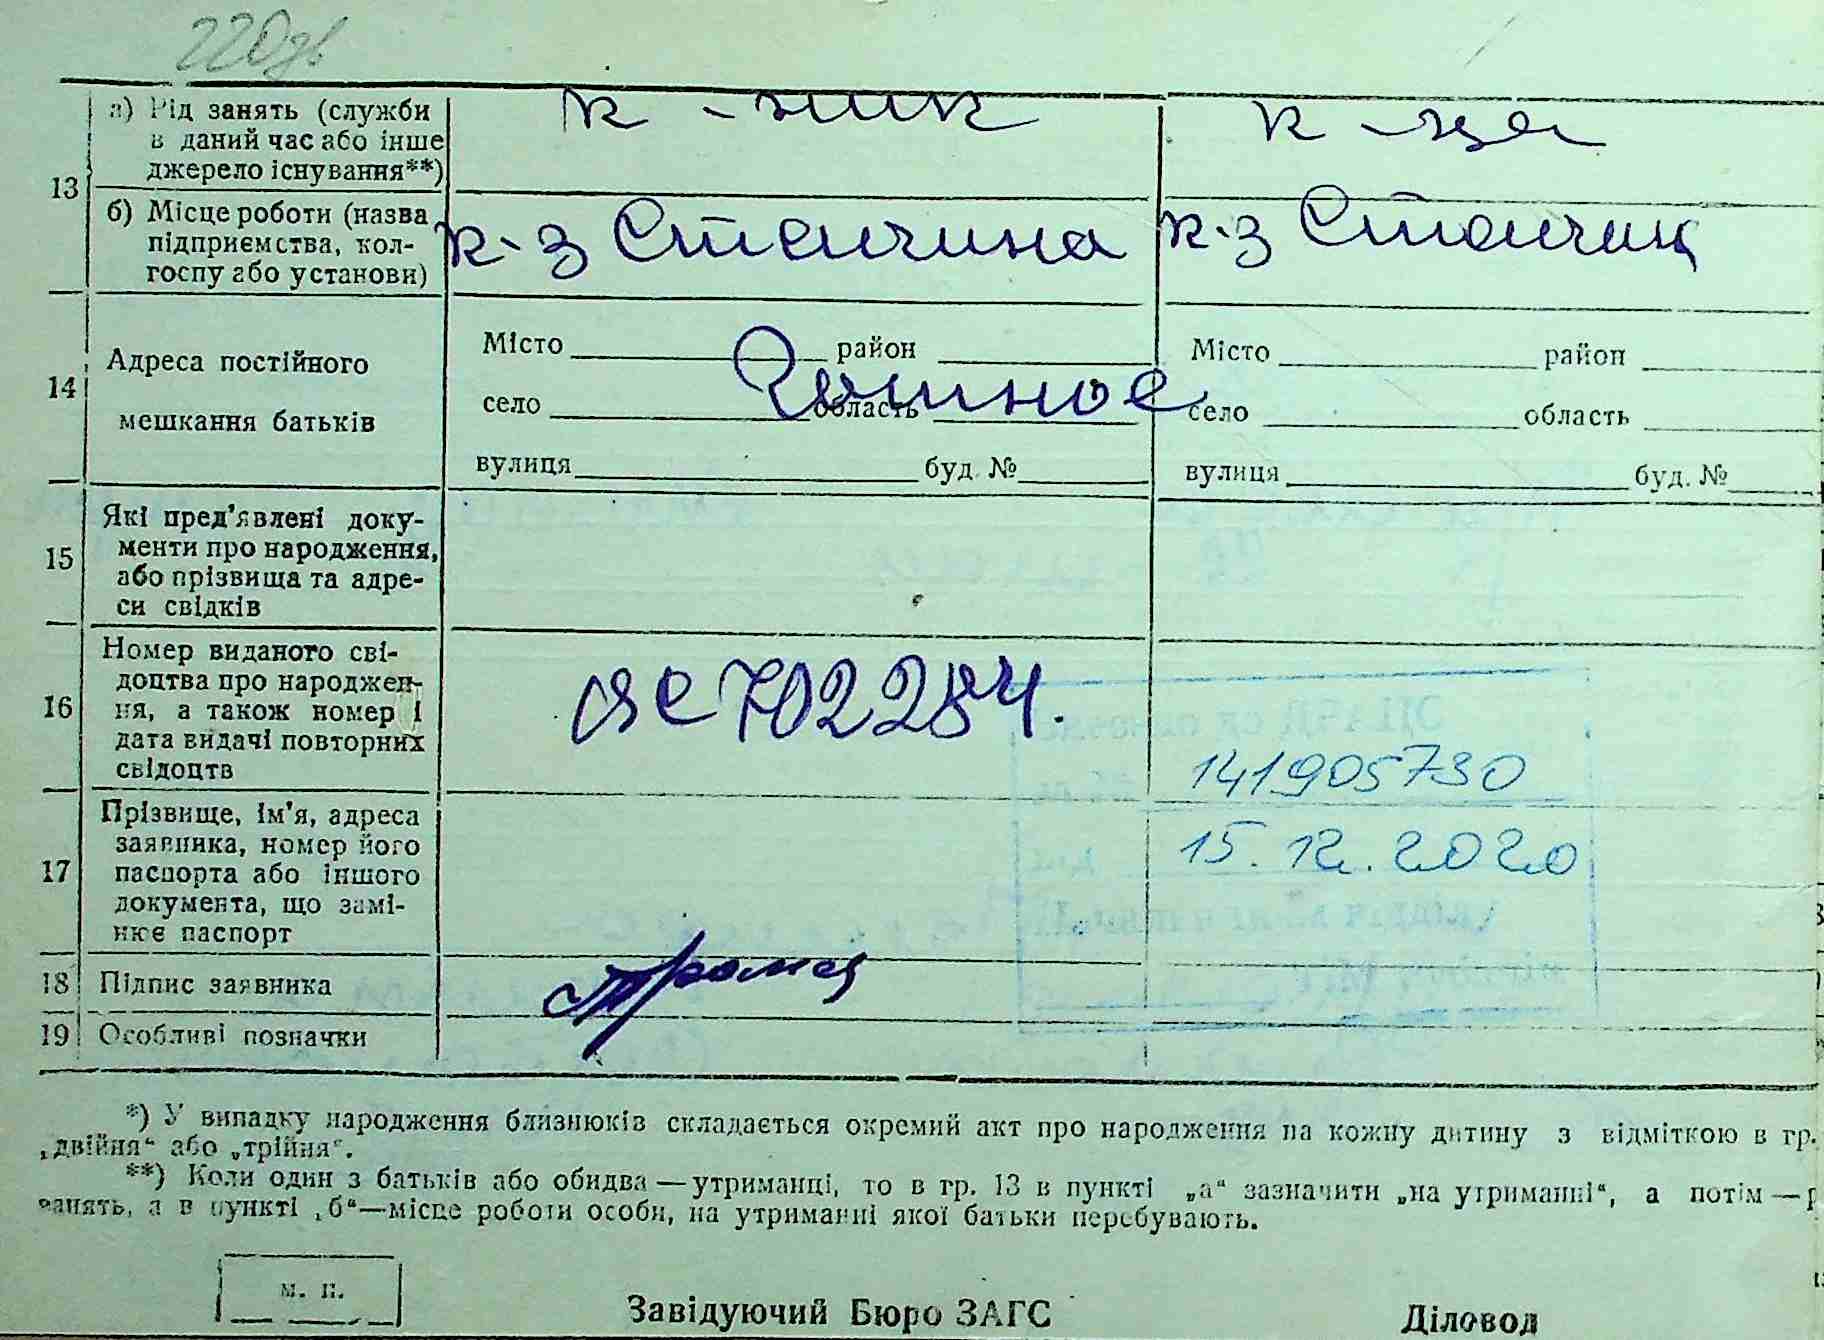 220зв
13
а) Рід занять (служби
в даний час або інше
джерело існування**)
к-ник
к-ца
б) Місце роботи (назва
підприємства, кол-
госпу або установи)
к-з Стачина
к-з
14
Адреса постійного
мешкання батьків
Місто район
село область
вулиця буд. №
Місто район
село область
вулиця буд. №
15
Які пред'явлені доку-
менти про народження,
або прізвища та адре-
си свідків
16
Номер виданого сві-
доцтва про народжен-
ня, а також номер і
дата видачі повторних
свідоцтв
ЯС 702284.
141905730
15.12.2020
17
Прізвище, ім'я, адреса
заявника, номер його
паспорта або іншого
документа, що замі-
нює паспорт
18 Підпис заявника
19 Особливі позначки
*) У випадку народження близнюків складається окремий акт про народження на кожну дитину з відміткою в гр.
„двійня“ або „трійня“.
**) Коли один з батьків або обидва — утриманці, то в гр. 13 в пункті „а“ зазначити „на утриманні“, а потім —
занять, а в пункті „б“ — місце роботи особи, на утриманні якої батьки перебувають.
м. п.
Завідуючий Бюро ЗАГС
Діловод